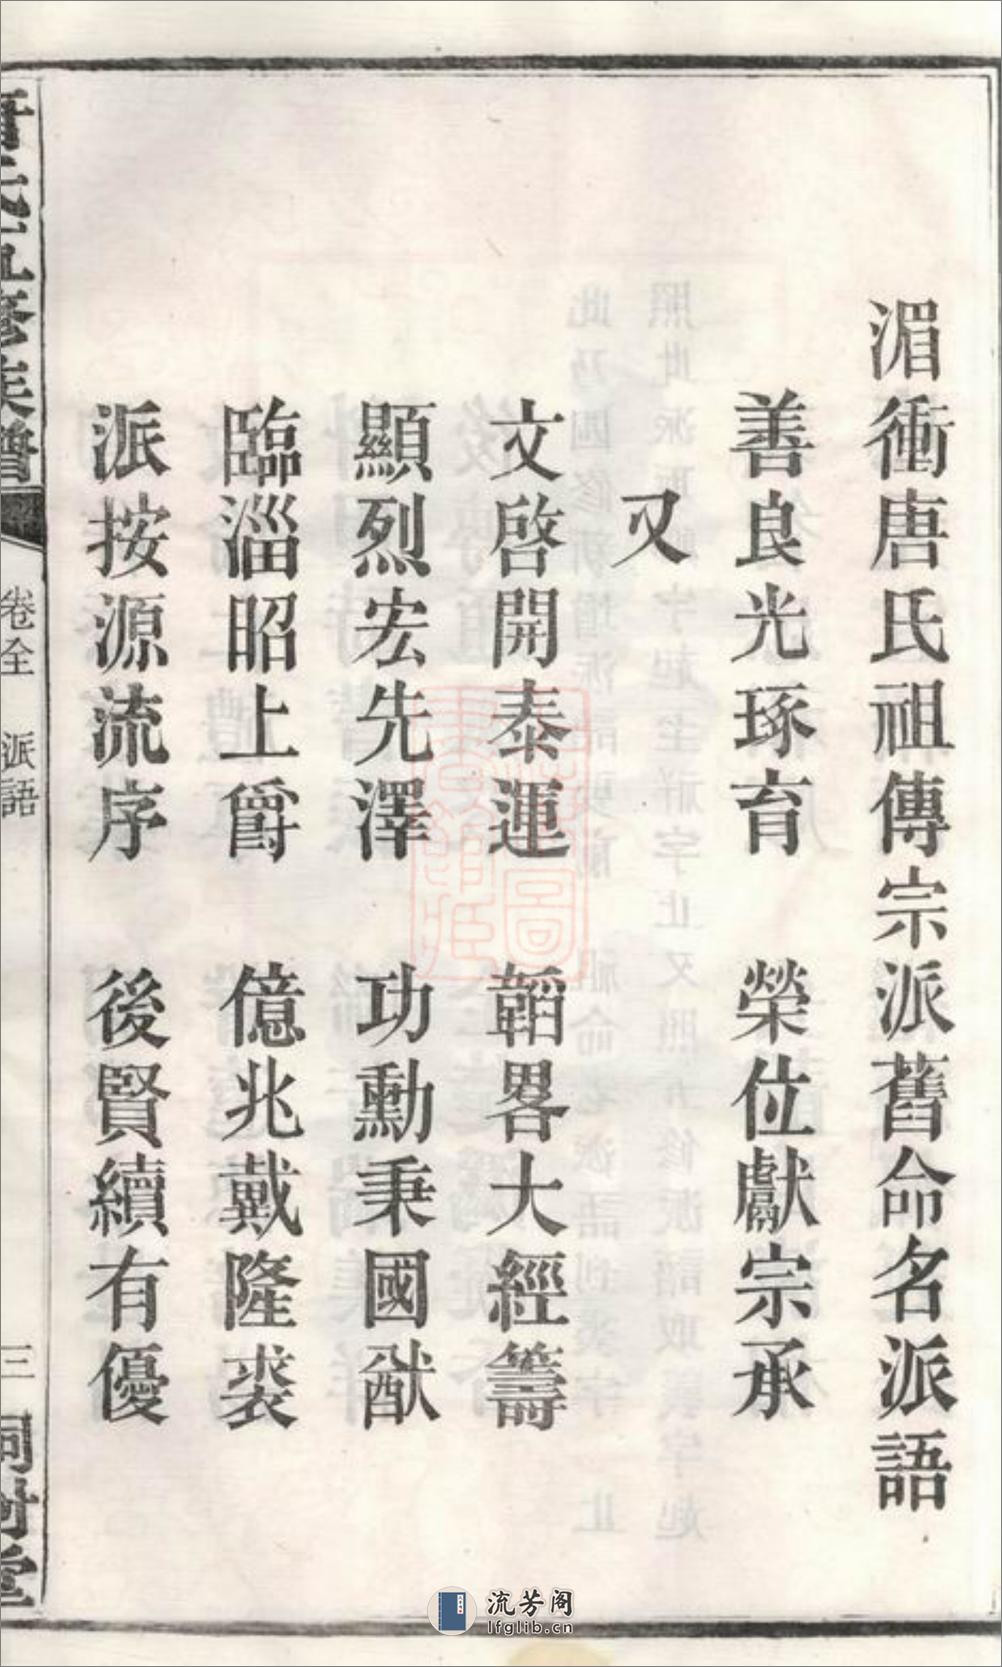 湄衝唐氏祖傳宗派舊命名派語
善良光琢育　榮位獻宗承
又
文啓開泰運　韜畧大經籌
顯烈宏先澤　功勳秉國猷
臨淄昭上爵　億兆戴隆裘
派按源流序　後賢續有優
唐氏五修族譜
卷全　派語
三
桐封堂
流芳阁
lfglib.cn